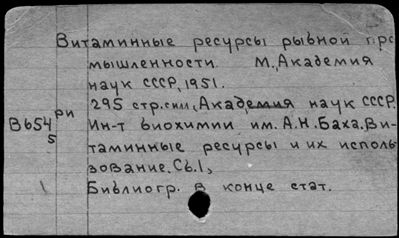 Витаминные ресурсы рывной про
мышленности. М., Академия
наук СССР, 1951.
ри 295 стр. силл., Академия наук СССР.
В654 Ин-т виохимии им. А.Н. Баха. Ви-
5 таминные ресурсы и их исполь
зование. Сб.1,
Библиогр. в конце стат.